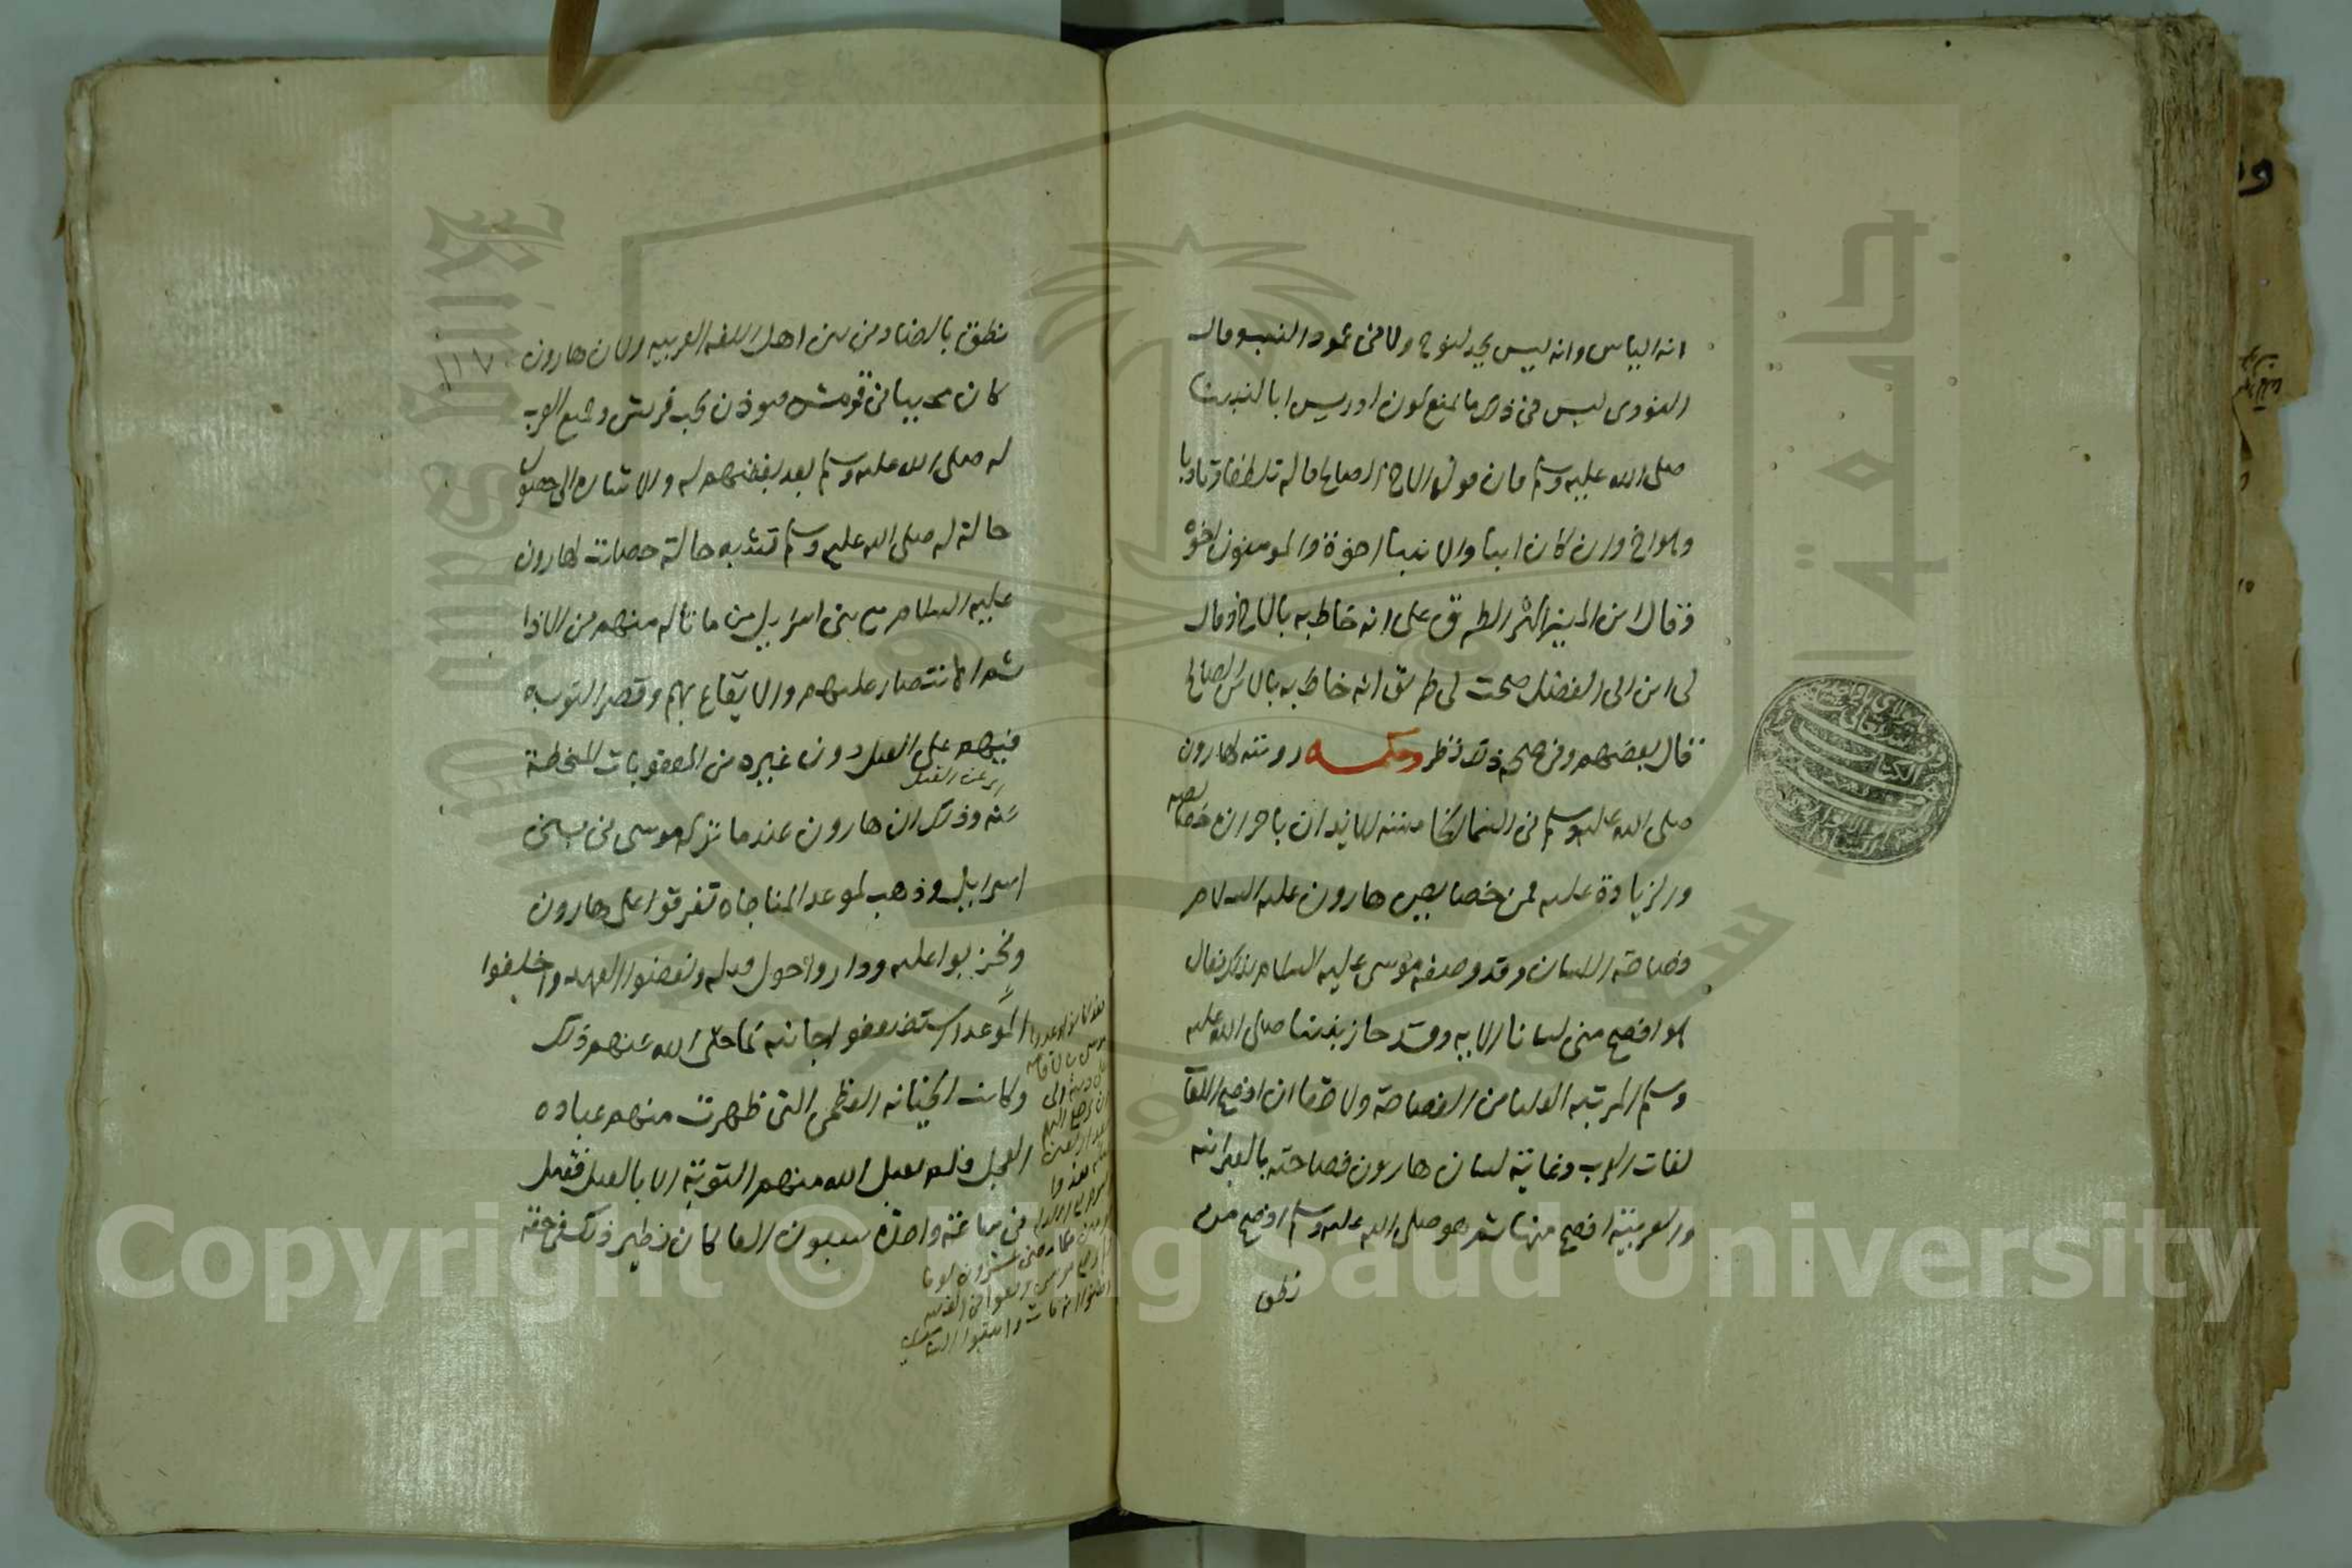 انه الياس وانه ليس بجد لنوح ولا في عمود النسب وقال
النووي ليس في ذلك ما يمنع كون ادريس ابا لنبينا
صلى الله عليه وسلم فان قوله الاخ الصالح قاله تلطفا وتادبا
وهو اخ وان كان ابنا والانبيا اخوة والمومنون اخوة
وقال ابن المنير اكثر الطرق على انه خاطبه بالاخ وقال
لي ابن ابي الفضل صحت لي طريق انه خاطبه بالابن الصالح
قال بعضهم وفي صحة ذلك نظر وحكمه رويته لهارون
صلى الله عليه وسلم في السما الخامسة للايذان باحراز خصايصه
والزيادة عليه فمن خصايص هارون عليه السلام
فصاحة اللسان وقد وصفه موسى عليه السلام بذلك فقال
هو افصح مني لسانا الايه وقد حاز نبينا صلى الله عليه
وسلم المرتبه العليا من الفصاحة ولا خفا ان افصح اللغات
لغات العرب وغاية لسان هارون فصاحته بالعبرانيه
والعربية افصح منها ثم هو صلى الله عليه وسلم افصح من
نطق
نطق بالضاد من بين اهل اللغه العربيه ولان هارون
١١٧
كان محببا في قومه فيوذن بحب قريش وجميع العرب
له صلى الله عليه وسلم بعد بغضهم له والاشاره الى حصول
حالة له صلى الله عليه وسلم تشبه حالة حصلت لهارون
عليه السلام مع بني اسرايل من ما ناله منهم من الاذا
ثم الانتصار عليهم والايقاع بهم وقصر التوبه
فيهم على القتل دون غيره من العقوبات المنحطة
اي عن القتل
عنه وذلك ان هارون عندما تركه موسى في بني
اسرايل وذهب لموعد المناجاه تفرقوا على هارون
وتحزبوا عليه وداروا حول قتله ونقضوا العهد واخلفوا
الموعد واستضعفوا جانبه كما حكى الله عنهم ذلك
وكانت الخيانه العظمى التي ظهرت منهم عباده
العجل فلم يقبل الله منهم التوبة الا بالقتل فقتل
في ساعة واحدة سبعون الفا كان نظير ذلك في حقه